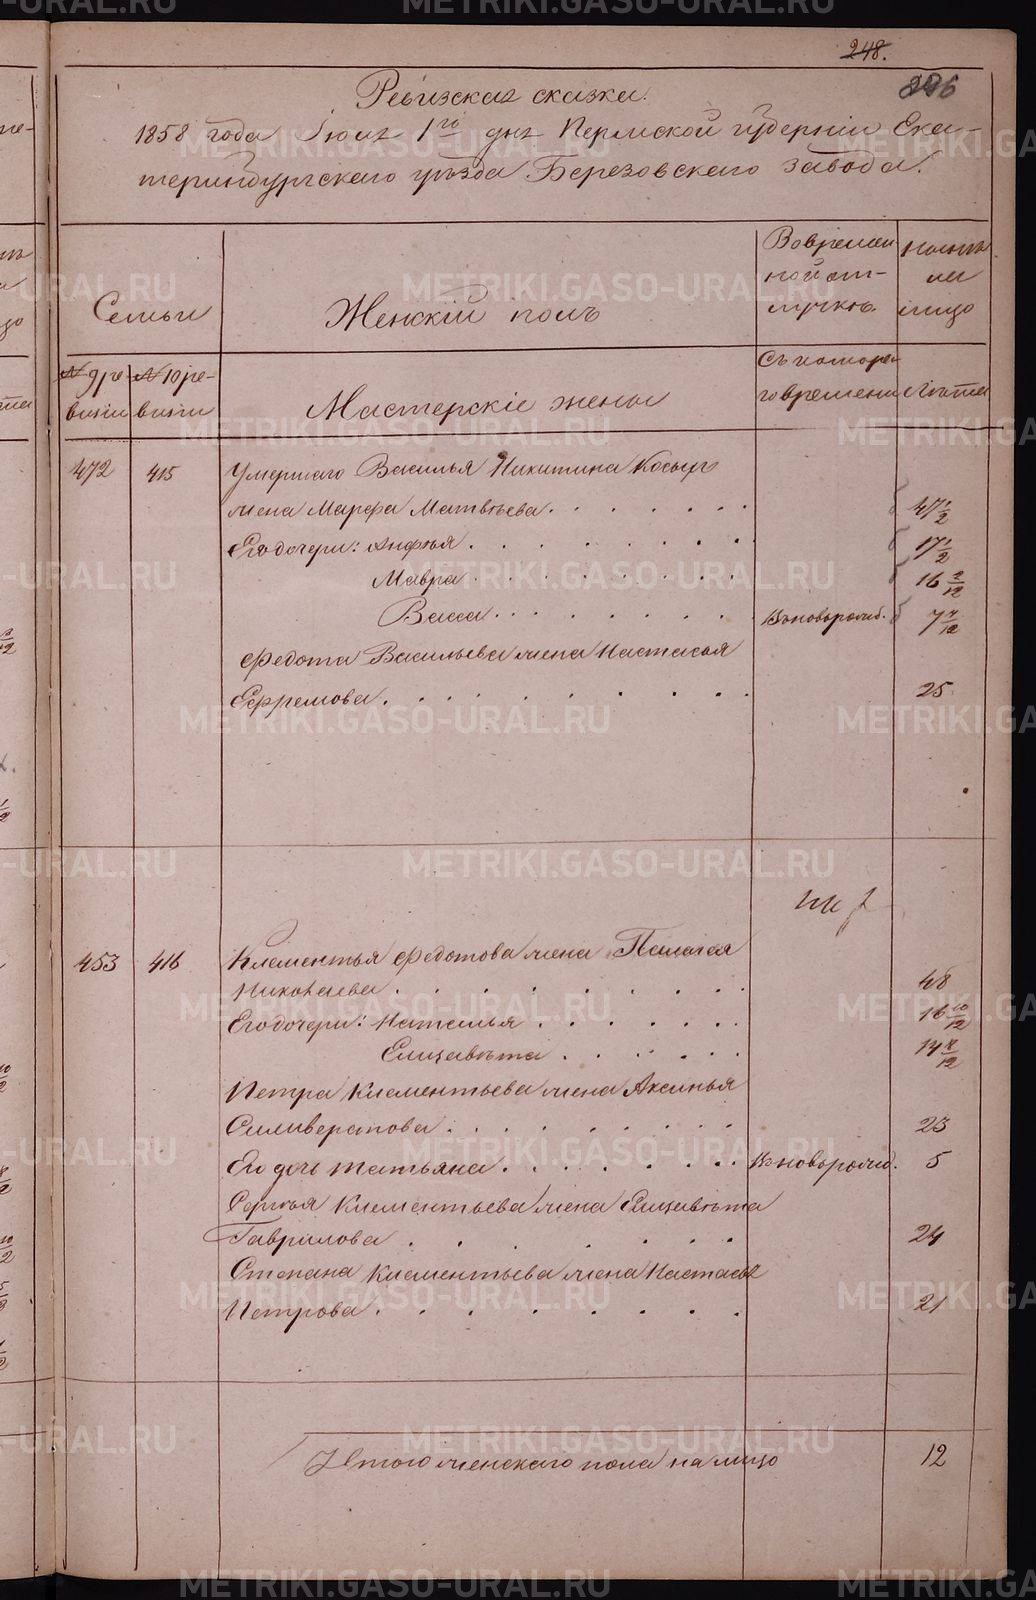 248.
Ревизская сказка.
1858 года Июня 1го дня Пермской губернии Ека-
теринбургскаго уѣзда Березовскаго завода.
Семьи
Женскій полъ
Во времен
ной от-
лучкѣ.
Нынѣ
на
лицо
№ 9 ре-
визіи
№ 10 ре-
визіи
Мастерскіе жены
Съ котора
го времени
Лѣта
472 415 Умершаго Василья Никитина Косыхъ
жена Марфа Матвѣева . . . . . . . 47 1/2
Его дочери: Анфья . . . . . . . . . 17 1/2
Мавра . . . . . . . . . 16 2/12
Васса . . . . . . . . Въ новорожд. 7 7/12
Федота Васильева жена Настасья
Ефремова . . . . . . . . . 25
453 416 Клементья Федотова жена Пелагея
Николаева . . . . . . . . . 48
Его дочери: Наталья . . . . . . . 16 10/12
Елизавѣта . . . . . . 14 8/12
Петра Клементьева жена Аксинья
Силиверстова . . . . . . . . 23
Его дочь Татьяна . . . . . . . Въ новорожд. 5
Сергѣя Клементьева жена Елизавѣта
Гаврилова . . . . . . . 24
Степана Клементьева жена Настасья
Петрова . . . . . . . . 21
Итого женскаго пола на лицо 12
METRIKI.GASO-URAL.RU